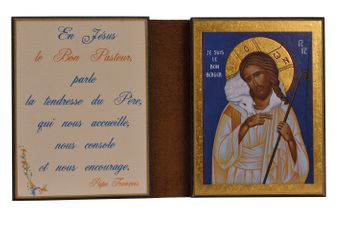 En Jésus
le Bon Pasteur,
parle
la tendresse du Père,
qui nous accueille,
nous console
et nous encourage.
Pape François
JE SUIS
LE
BON
BERGER
Ο Ω Ν
IC XC